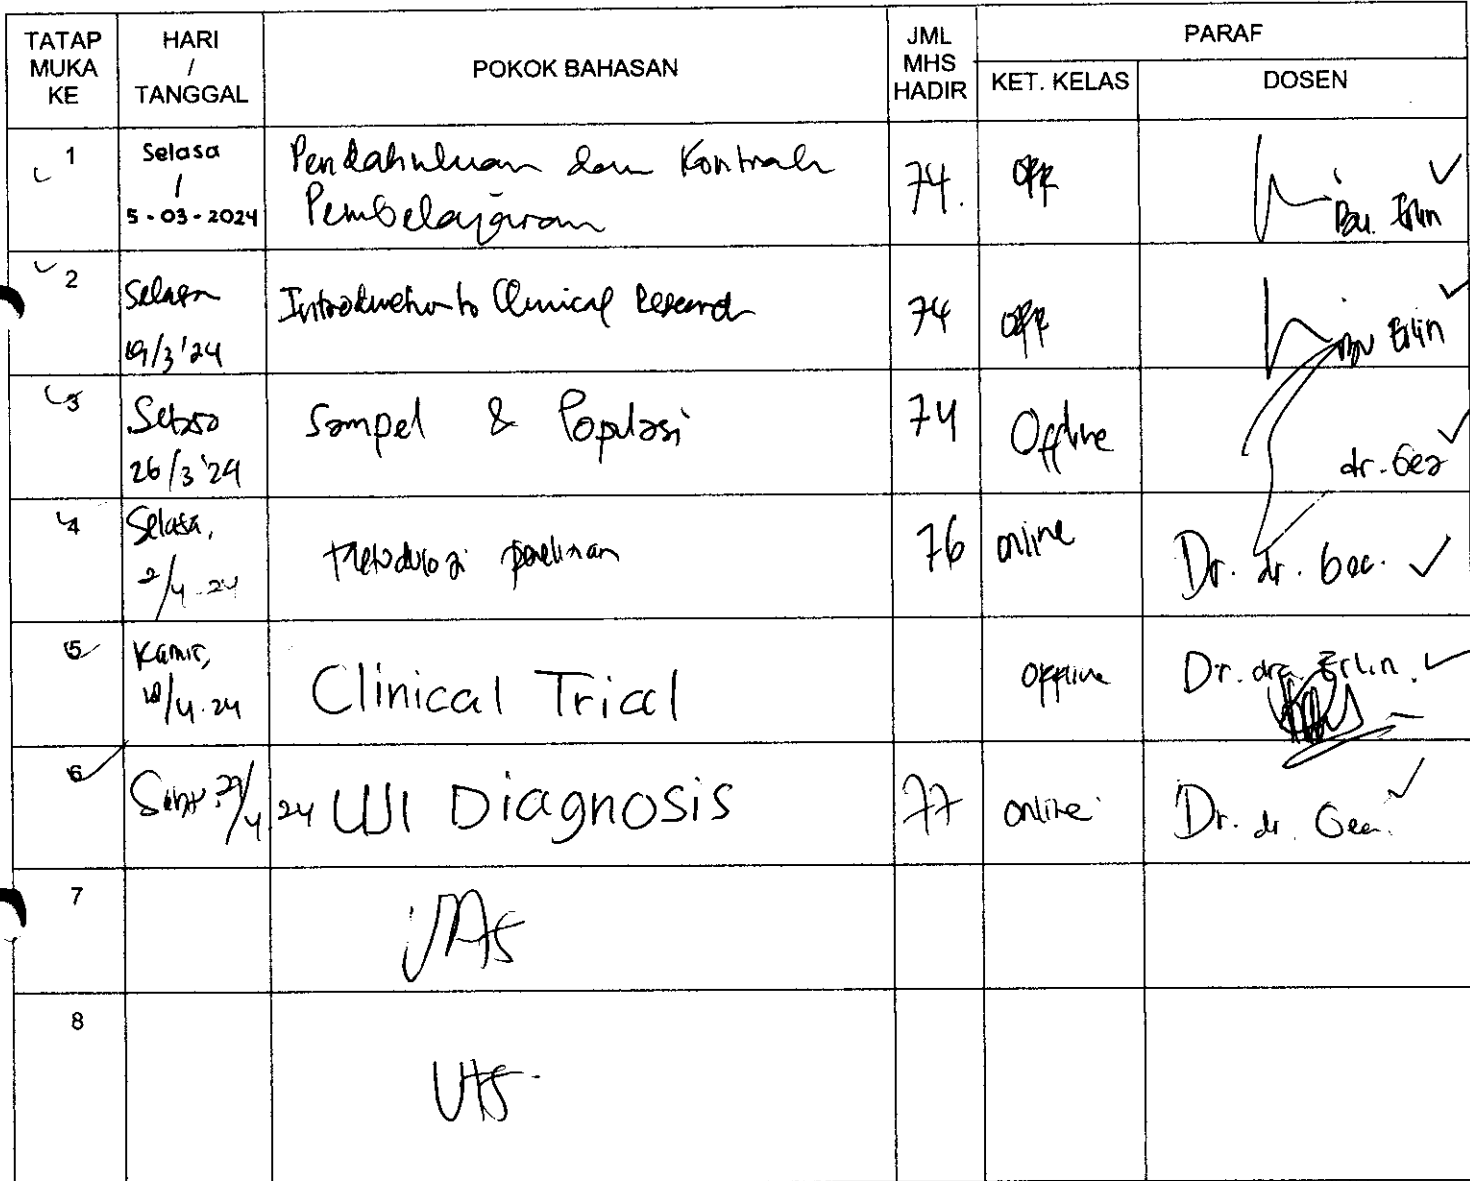 TATAP MUKA KE
HARI / TANGGAL
POKOK BAHASAN
JML MHS HADIR
PARAF
KET. KELAS
DOSEN
1
Selasa / 5-03-2024
Pendahuluan dan Kontrak
Pembelajaran
74.
Off
Bu Erlin
2
Selasa
19/3'24
Introduction to Clinical Research
74
Off
Bu Erlin
3
Selasa
26/3'24
Sampel & Populasi
74
Offline
dr. Gea
4
Selasa,
2/4-24
Metodologi penelitian
76
online
Dr. dr. Gea.
5
Kamis,
18/4-24
Clinical Trial
Offline
Dr. dra. Erlin.
6
24
UJI Diagnosis
77
online
Dr. dr. Gea.
7
8
UTS